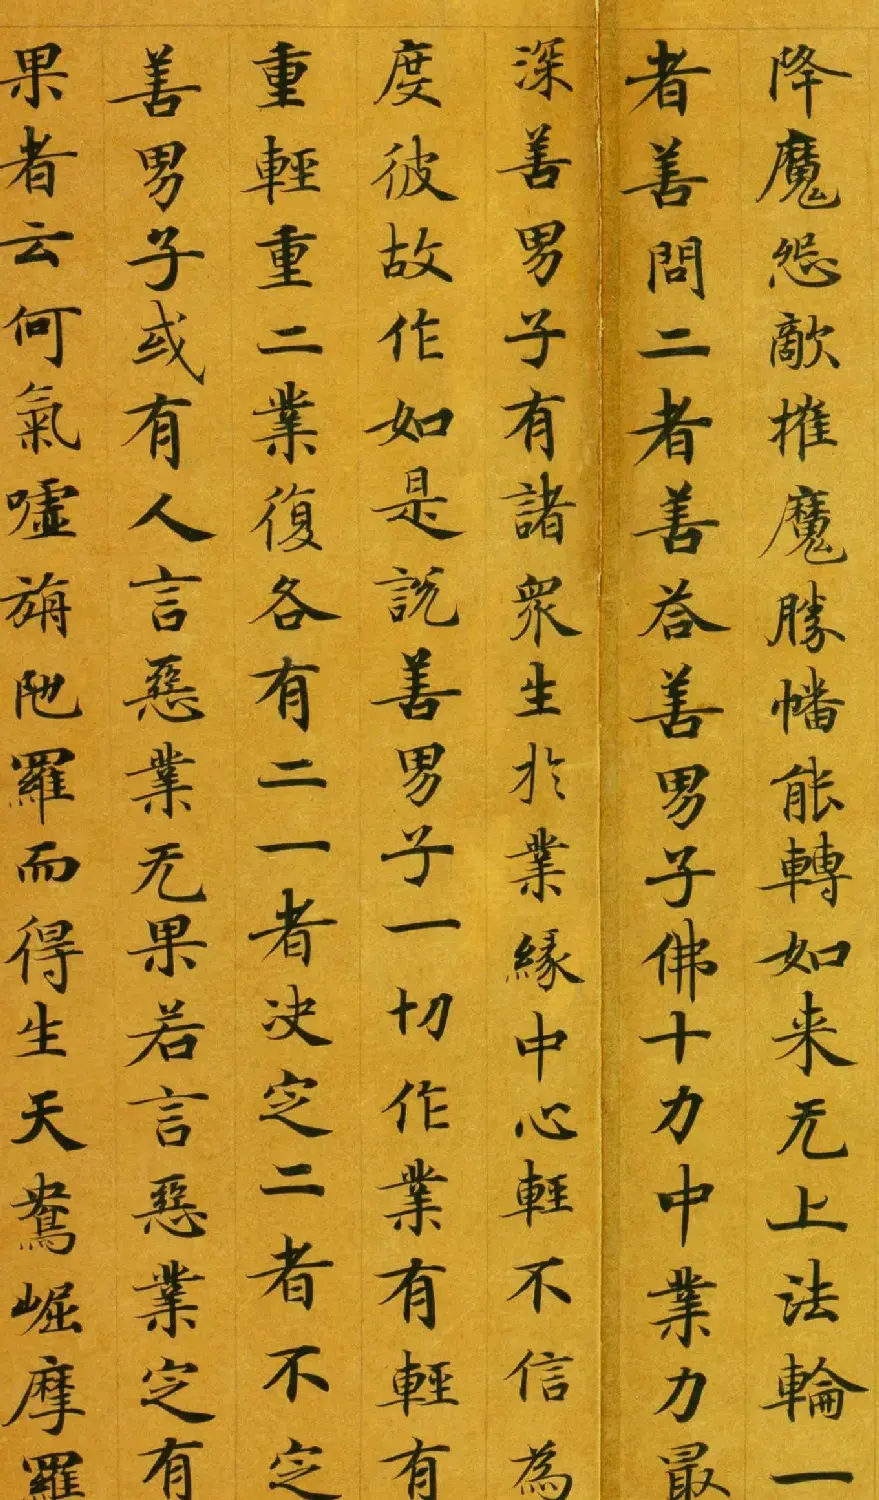 降魔怨敵摧魔勝幡能轉如来无上法輪一
者善問二者善荅善男子佛十力中業力最
深善男子有諸衆生於業緣中心輕不信為
度彼故作如是説善男子一切作業有輕有
重輕重二業復各有二一者决定二者不定
善男子或有人言惡業无果若言惡業定有
果者云何氣嘘旃陁羅而得生天鴦崛摩羅